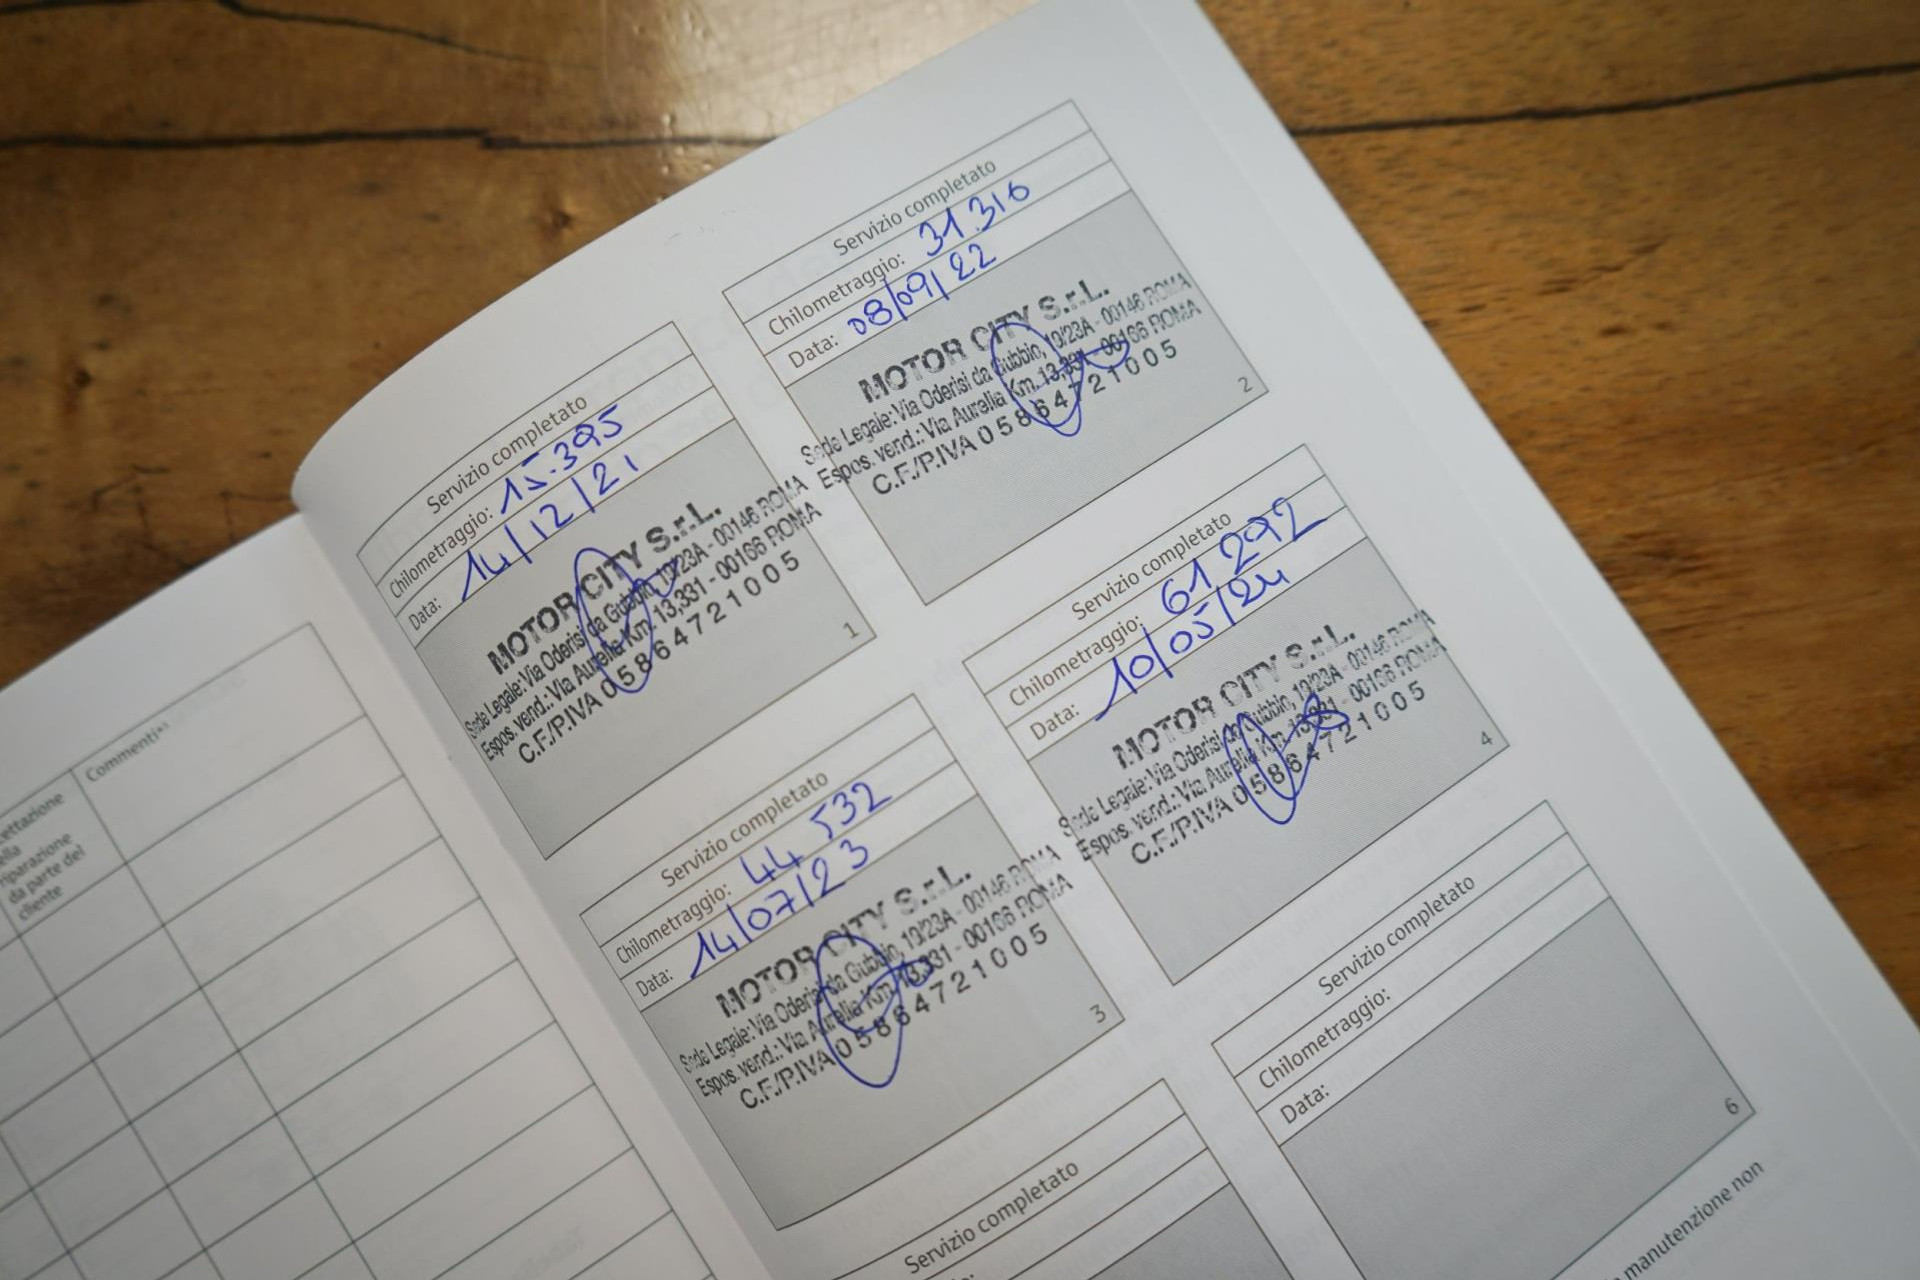 Servizio completato
Chilometraggio: 15.395
Data: 14/12/21
MOTOR CITY S.r.L.
Sede Legale: Via Oderisi da Gubbio, 19/23A - 00146 ROMA
Espos. vend.: Via Aurelia Km. 13,331 - 00166 ROMA
C.F./P.IVA 05864721005
1
Servizio completato
Chilometraggio: 31.316
Data: 08/09/22
MOTOR CITY S.r.L.
Sede Legale: Via Oderisi da Gubbio, 19/23A - 00146 ROMA
Espos. vend.: Via Aurelia Km. 13,331 - 00166 ROMA
C.F./P.IVA 05864721005
2
Servizio completato
Chilometraggio: 44 532
Data: 14/07/23
MOTOR CITY S.r.L.
Sede Legale: Via Oderisi da Gubbio, 19/23A - 00146 ROMA
Espos. vend.: Via Aurelia Km. 13,331 - 00166 ROMA
C.F./P.IVA 05864721005
3
Servizio completato
Chilometraggio: 61 292
Data: 10/05/24
MOTOR CITY S.r.L.
Sede Legale: Via Oderisi da Gubbio, 19/23A - 00146 ROMA
Espos. vend.: Via Aurelia Km. 13,331 - 00166 ROMA
C.F./P.IVA 05864721005
4
Servizio completato
Servizio completato
Chilometraggio:
Data:
6
manutenzione non
riparazione
da parte del
cliente
Commenti**